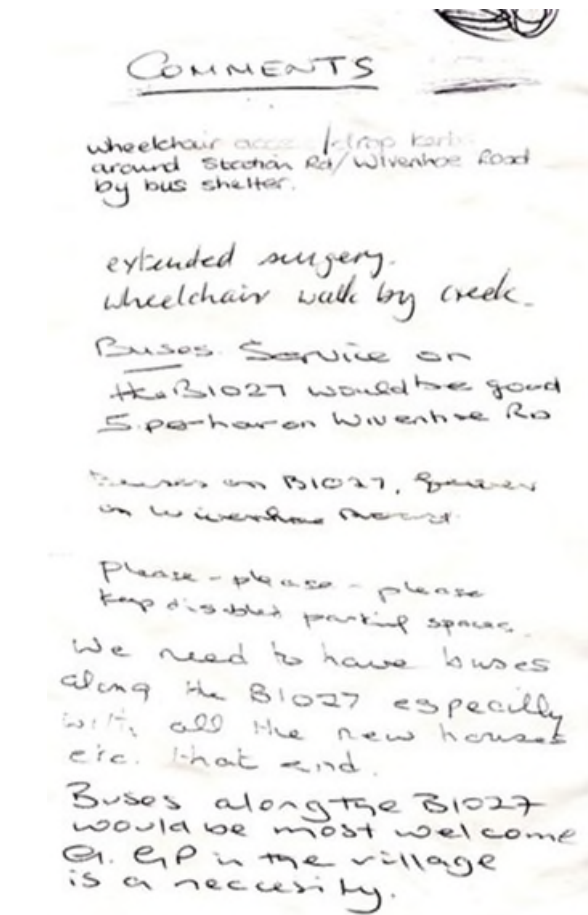 COMMENTS
wheelchair access / drop kerbs
around Station Rd/Wivenhoe Road
by bus shelter.
extended surgery.
wheelchair walk by creek.
Buses. Service on
the B1027 would be good
5 per hour on Wivenhoe Rd
Buses on B1027, fewer
in Wivenhoe Road.
Please - please - please
keep disabled parking spaces.
We need to have buses
along the B1027 especilly
with all the new houses
etc. that end.
Buses along the B1027
would be most welcome
GP in the village
is a neccesity.